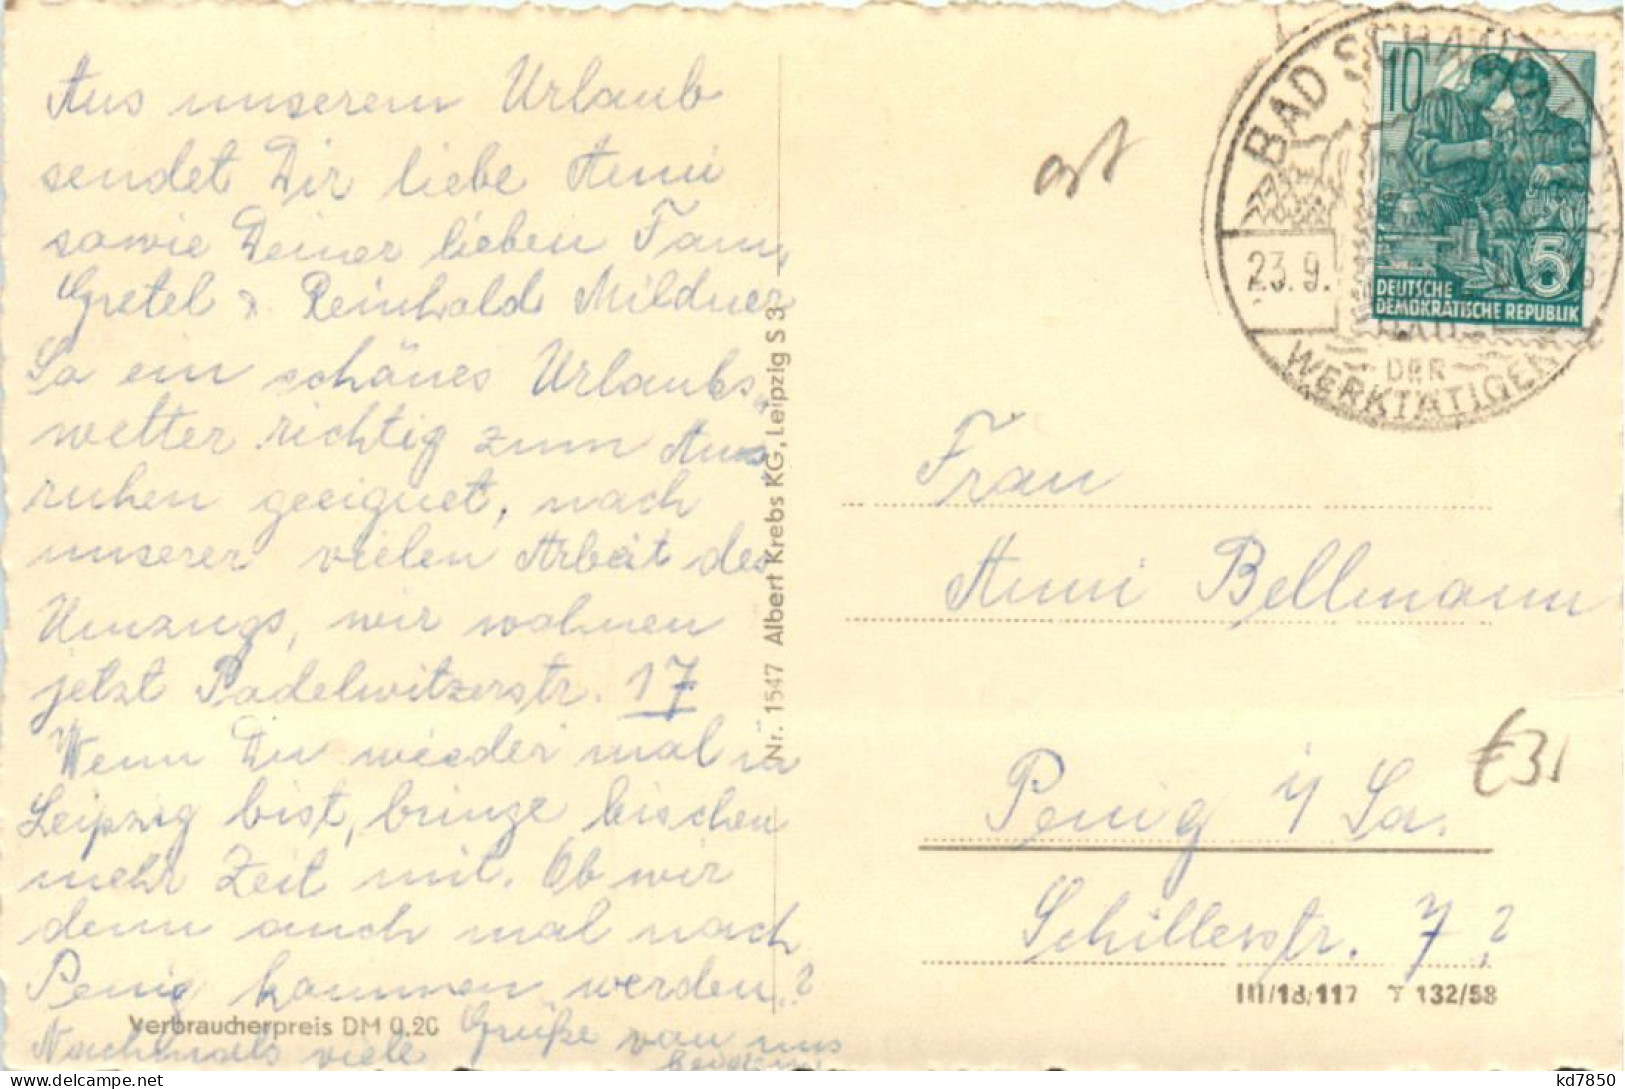 Aus unserem Urlaub
sendet Dir liebe Anni
sowie Deiner lieben Fam.
Gretel & Reinhold Mildner
So ein schönes Urlaubs,,
wetter richtig zum Aus
ruhen geeignet, nach
unserer vielen Arbeit des
Umzugs, wir wohnen
jetzt Padelwitzerstr. 17
Wenn Du wieder mal in
Leipzig bist, bringe bischen
mehr Zeit mit. Ob wir
denn auch mal nach
Penig kommen werden.?
Nachmals viele Grüße von uns
beiden
Verbraucherpreis DM 0.20
Nr. 1547 Albert Krebs KG, Leipzig S 3
BAD SCHANDAU
23.9.
DER
WERKTÄTIGEN
10
5
DEUTSCHE
DEMOKRATISCHE REPUBLIK
Frau
Anni Bellmann
Penig i/Sa.
€3,
Schillerstr. 7.?
III/18/117 T 132/58
kd7850